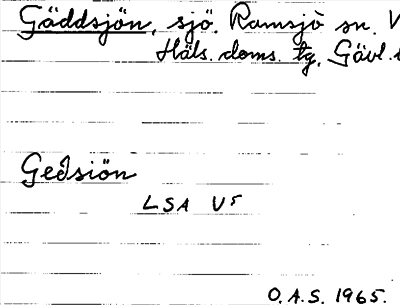 Gäddsjön, sjö. Ramsjö sn. V
Häls. doms. tg, Gävl.
Gedsiön
LSA V5
O.A.S. 1965.